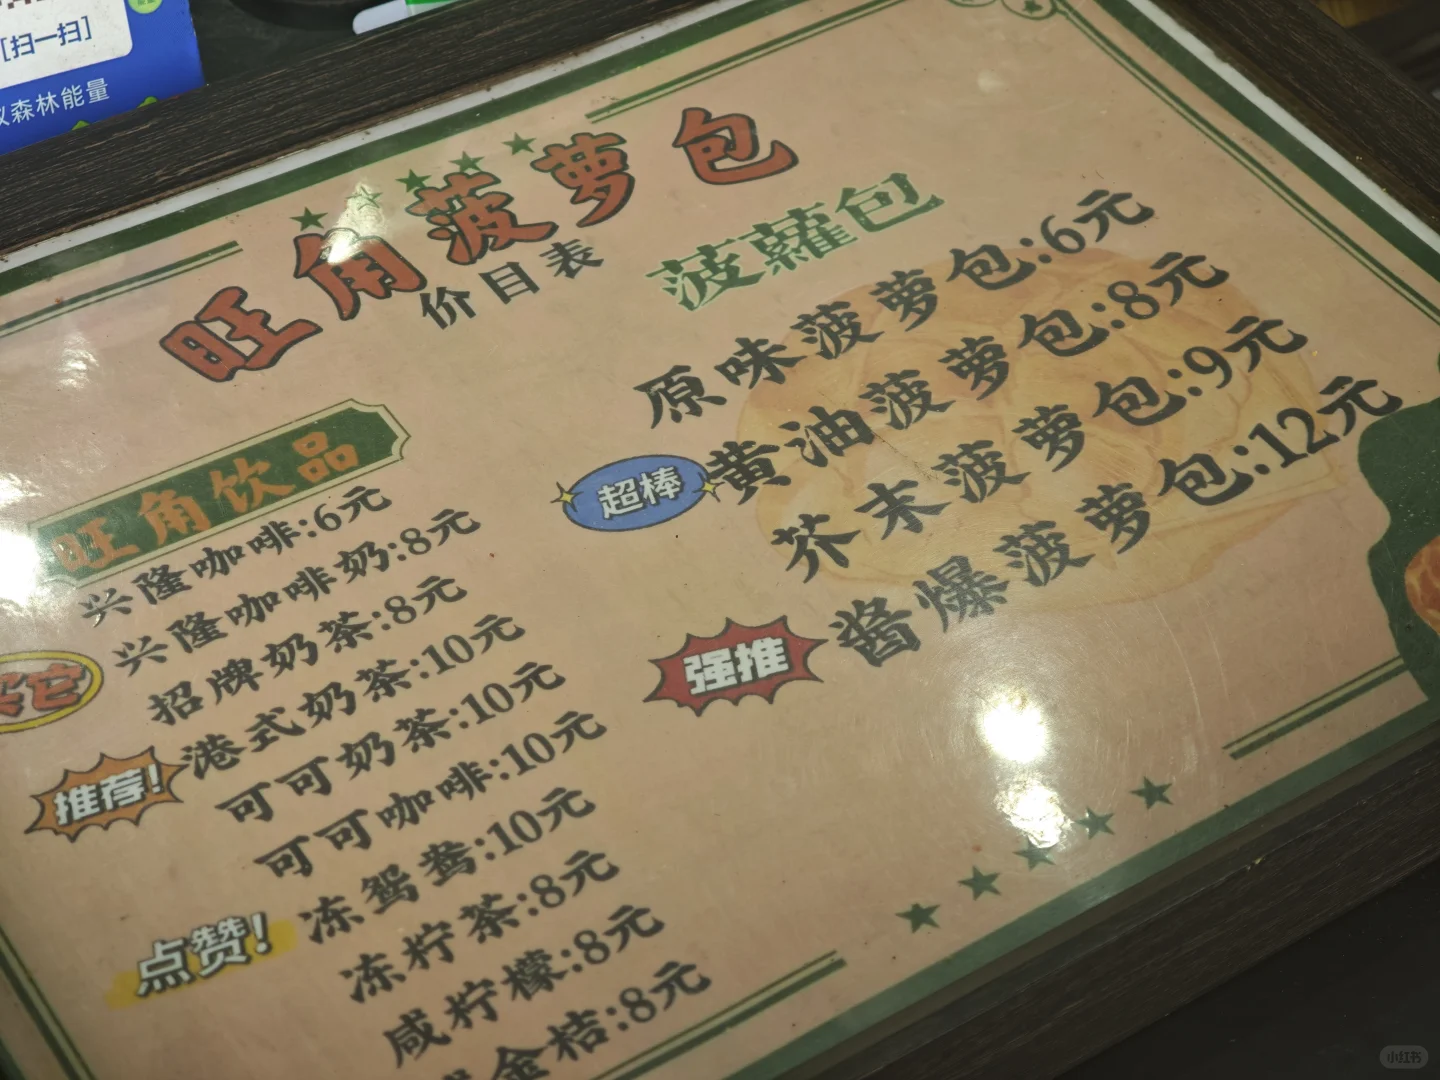 [扫一扫]
森林能量
旺角菠萝包
价目表
菠蘿包
原味菠萝包:6元
超棒
黄油菠萝包:8元
芥末菠萝包:9元
强推
酱爆菠萝包:12元
旺角饮品
兴隆咖啡:6元
兴隆咖啡奶:8元
买它
招牌奶茶:8元
推荐!
港式奶茶:10元
可可奶茶:10元
可可咖啡:10元
点赞!
冻鸳鸯:10元
冻柠茶:8元
咸柠檬:8元
金桔:8元
小红书